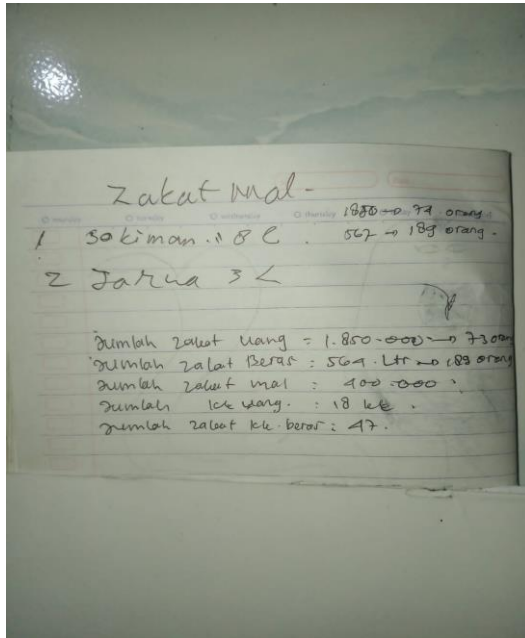 Zakat mal -
1850 → 74 orang
1 Sakiman. 11 8 L. 567 → 189 orang.
2 Jarwa 3 L
Jumlah zakat uang = 1.850.000 → 73 oran
Jumlah zakat Beras : 564. Ltr → 189 orang
Jumlah zakat mal : 400.000.
Jumlah kk uang. : 18 kk.
Jumlah zakat kk. beras : 47.